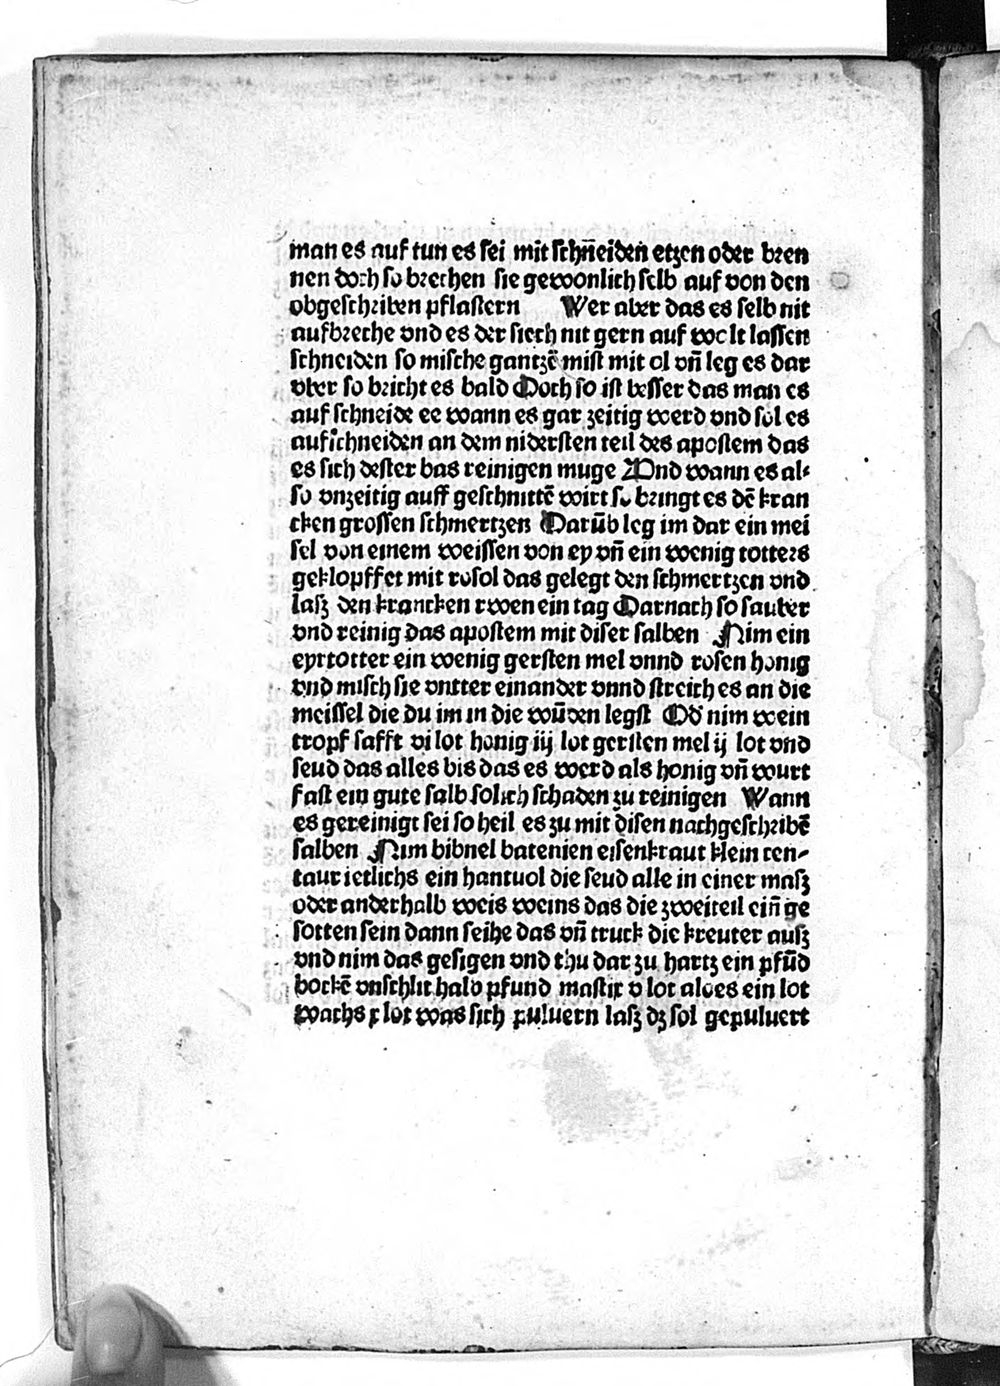 man es auf tun es sei mit schn̄eiden etzen oder bren
nen doch so brechen sie gewonlich selb auf von den
obgeschriben pflastern Wer aber das es selb nit
aufbreche vnd es der siech nit gern auf wolt lassen
schneiden so mische gantzē mist mit ol vn̄ leg es dar
vber so bricht es bald Doch so ist besser das man es
auf schneide ee wann es gar zeitig werd vnd sol es
aufschneiden an dem nidersten teil des apostem das
es sich dester bas reinigen muge Vnd wann es al⸗
so vnzeitig auff geschnittē wirt so bringt es dē kran
cken grossen schmertzen Darūb leg im dar ein mei
sel von einem weissen von ey vn̄ ein wenig totters
geklopffet mit rosol das gelegt den schmertzen vnd
lasz den krancken rwen ein tag Darnach so sauber
vnd reinig das apostem mit diser salben Nim ein
eyrtotter ein wenig gersten mel vnnd rosen honig
vnd misch sie vntter einander vnnd streich es an die
meissel die du im in die wūden legst Od̄ nim wein
tropf safft vi lot honig iij lot gersten mel ij lot vnd
seud das alles bis das es werd als honig vn̄ wurt
fast ein gute salb solich schaden zu reinigen Wann
es gereinigt sei so heil es zu mit disen nachgeschribē
salben Nim bibnel batenien eisenkraut klein cen⸗
taur ietlichs ein hantuol die seud alle in einer masz
oder anderhalb weis weins das die zweiteil ein̄ ge
sotten sein dann seihe das vn̄ truck die kreuter ausz
vnd nim das gesigen vnd thu dar zu hartz ein pfūd
bockē vnschlit halb pfund mastix v lot aloes ein lot
wachs x lot was sich puluern lasz dz sol gepuluert